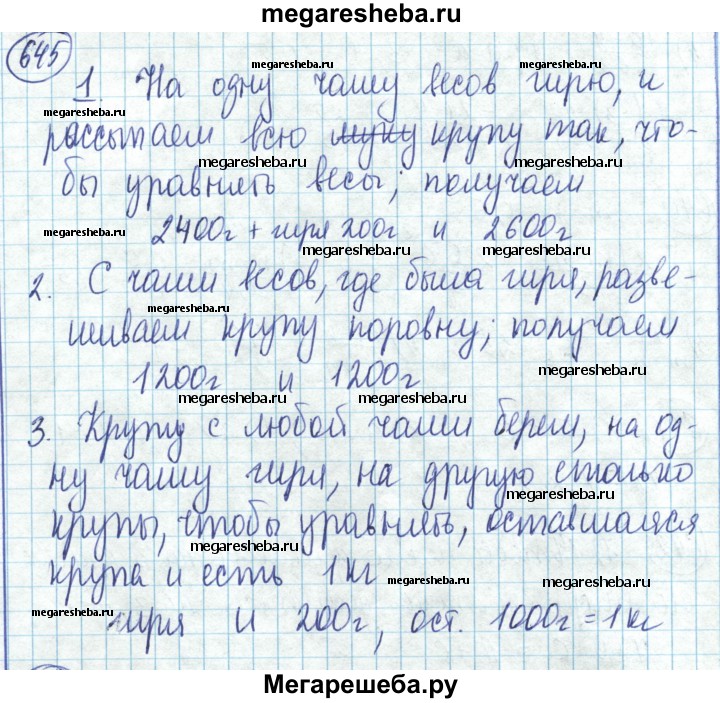 megaresheba.ru
645
megaresheba.ru megaresheba.ru
1. На одну чашу весов гирю, и
megaresheba.ru megaresheba.ru
рассыпаем всю муку крупу так, что-
megaresheba.ru megaresheba.ru
бы уравнять весы; получаем
megaresheba.ru
2400г + гиря 200г и 2600г
megaresheba.ru megaresheba.ru megaresheba.ru
2. С чаши весов, где была гиря, разве-
megaresheba.ru
шиваем крупу поровну; получаем
megaresheba.ru
1200г и 1200г
megaresheba.ru megaresheba.ru
3. Крупу с любой чаши берем, на од-
megaresheba.ru
ну чашу гиря, на другую столько
megaresheba.ru
крупы, чтобы уравнять, оставшаяся
megaresheba.ru
крупа и есть 1кг
megaresheba.ru megaresheba.ru
megaresheba.ru
гиря и 200г, ост. 1000г = 1кг
Мегарешеба.ру